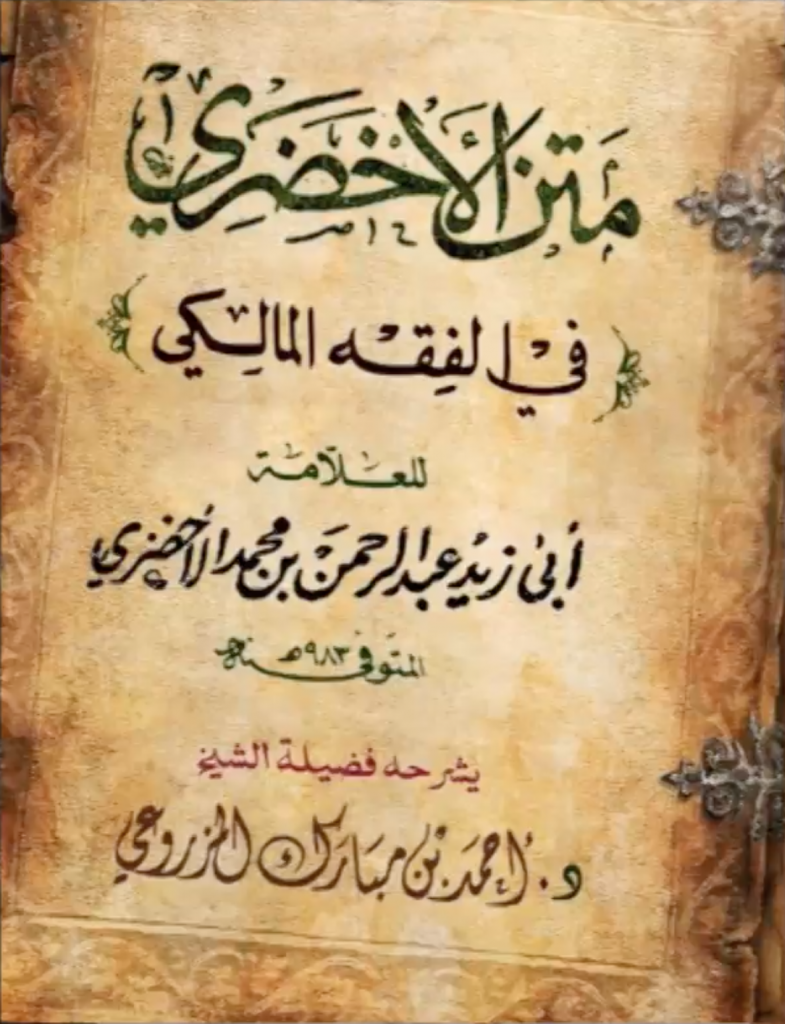 متن الأخضري
في الفقه المالكي
للعلامة
أبي زيد عبد الرحمن بن محمد الأخضري
المتوفى سنة ٩٨٣هـ
يشرحه فضيلة الشيخ
د. أحمد بن مبارك المزروعي